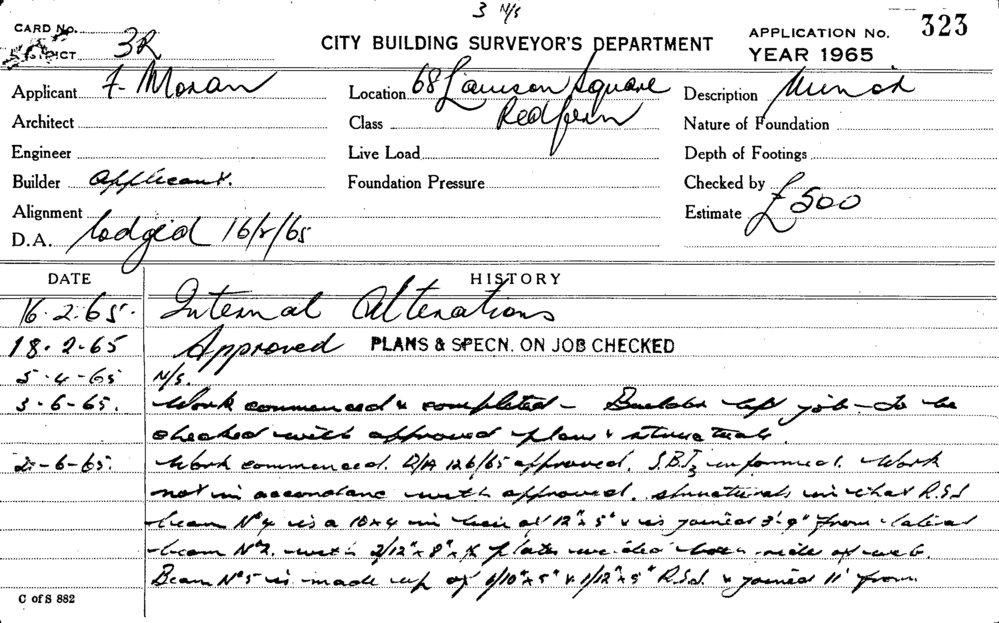 3 N/S
CARD No.
DISTRICT 3R
CITY BUILDING SURVEYOR'S DEPARTMENT
APPLICATION No. 323
YEAR 1965
Applicant F. Moran
Location 68 Lawson Square
Redfern
Description Minor
Architect
Class
Nature of Foundation
Engineer
Live Load
Depth of Footings
Builder Applicant.
Foundation Pressure
Checked by
Alignment
Estimate £500
D.A. lodged 16/2/65
DATE
HISTORY
16.2.65. Internal Alterations
18.2.65 Approved PLANS & SPECN. ON JOB CHECKED
5-4-65 N/S.
3-6-65. Work commenced & completed - Builder left job - To be
checked with approved plan & structurals.
2-6-65. Work commenced. D/A 126/65 approved. S.B.I3 informed. Work
not in accordance with approved structurals in that R.S.J
beam No 4 is a 10x4 in lieu of 12"x5" & is joined 3'-9" from lateral
beam No 2. with 2/12"x8"x plates welded both side of web.
Beam No 5 is made up of 1/10"x5" & 1/12"x5" R.S.J. & joined 11' from
C of S 882